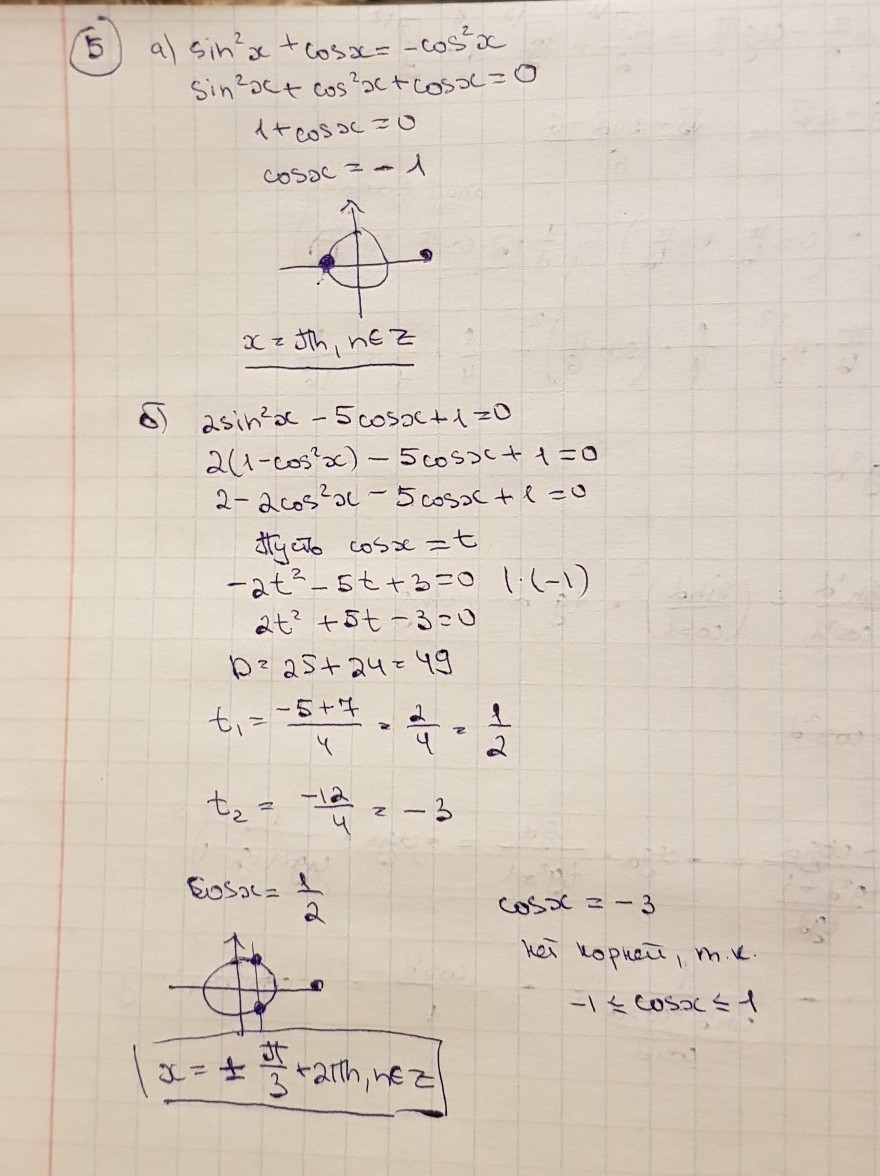 5 а) sin²x + cosx = -cos²x
sin²x + cos²x + cosx = 0
1 + cosx = 0
cosx = - 1
x = πn, n∈Z
б) 2sin²x - 5cosx + 1 = 0
2(1-cos²x) - 5cosx + 1 = 0
2 - 2cos²x - 5cosx + 1 = 0
Пусть cosx = t
-2t² - 5t + 3 = 0 |·(-1)
2t² + 5t - 3 = 0
D = 25 + 24 = 49
t₁ = (-5+7)/4 = 2/4 = 1/2
t₂ = -12/4 = -3
cosx = 1/2
cosx = -3
нет корней, т.к.
-1 ≤ cosx ≤ 1
x = ± π/3 + 2πn, n∈Z